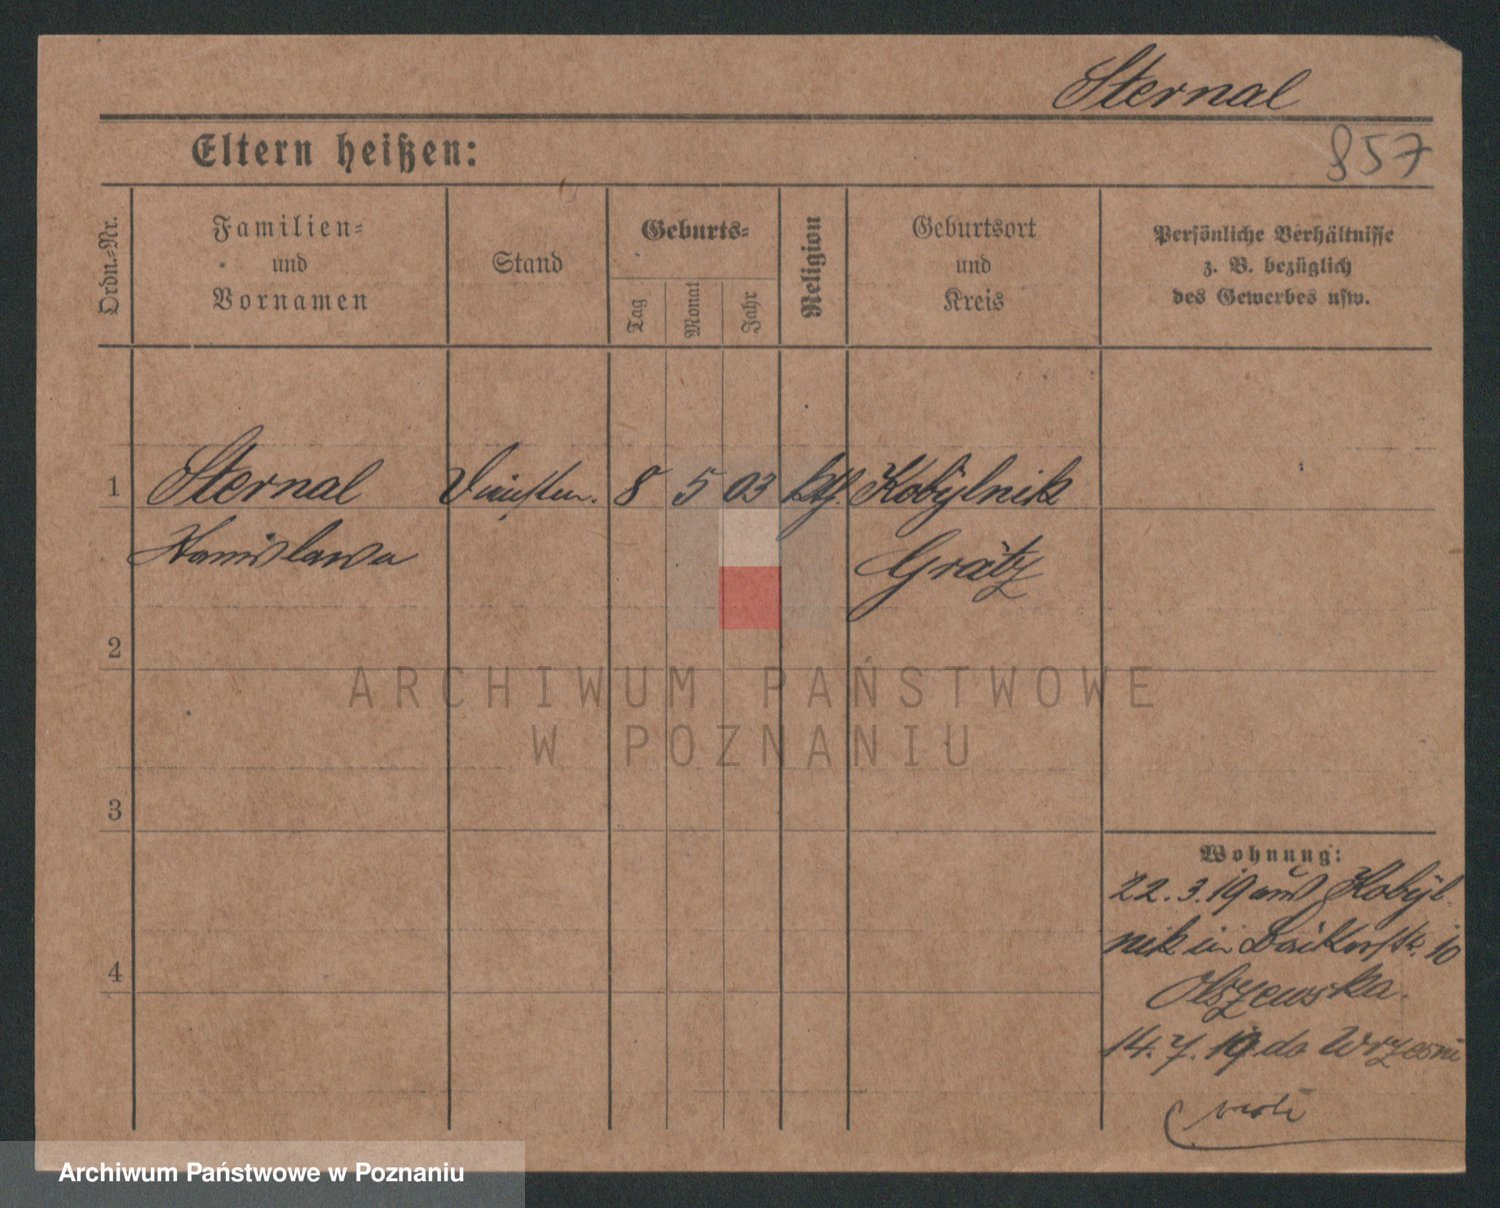 Sternal
857
Eltern heißen:
Ordn.-Nr.
Familien-
und
Vornamen
Stand
Geburts-
Tag
Monat
Jahr
Religion
Geburtsort
und
Kreis
Persönliche Verhältnisse
z. B. bezüglich
des Gewerbes usw.
1 Sternal 8 5 03 kth. Kobylnik
Stanislawa Grätz
2
3
4
Wohnung:
22.3.19 aus Kobyl-
nik in 10
Olszewska.
14.7.19 do Wrzesni
verte
ARCHIWUM PAŃSTWOWE
W POZNANIU
Archiwum Państwowe w Poznaniu